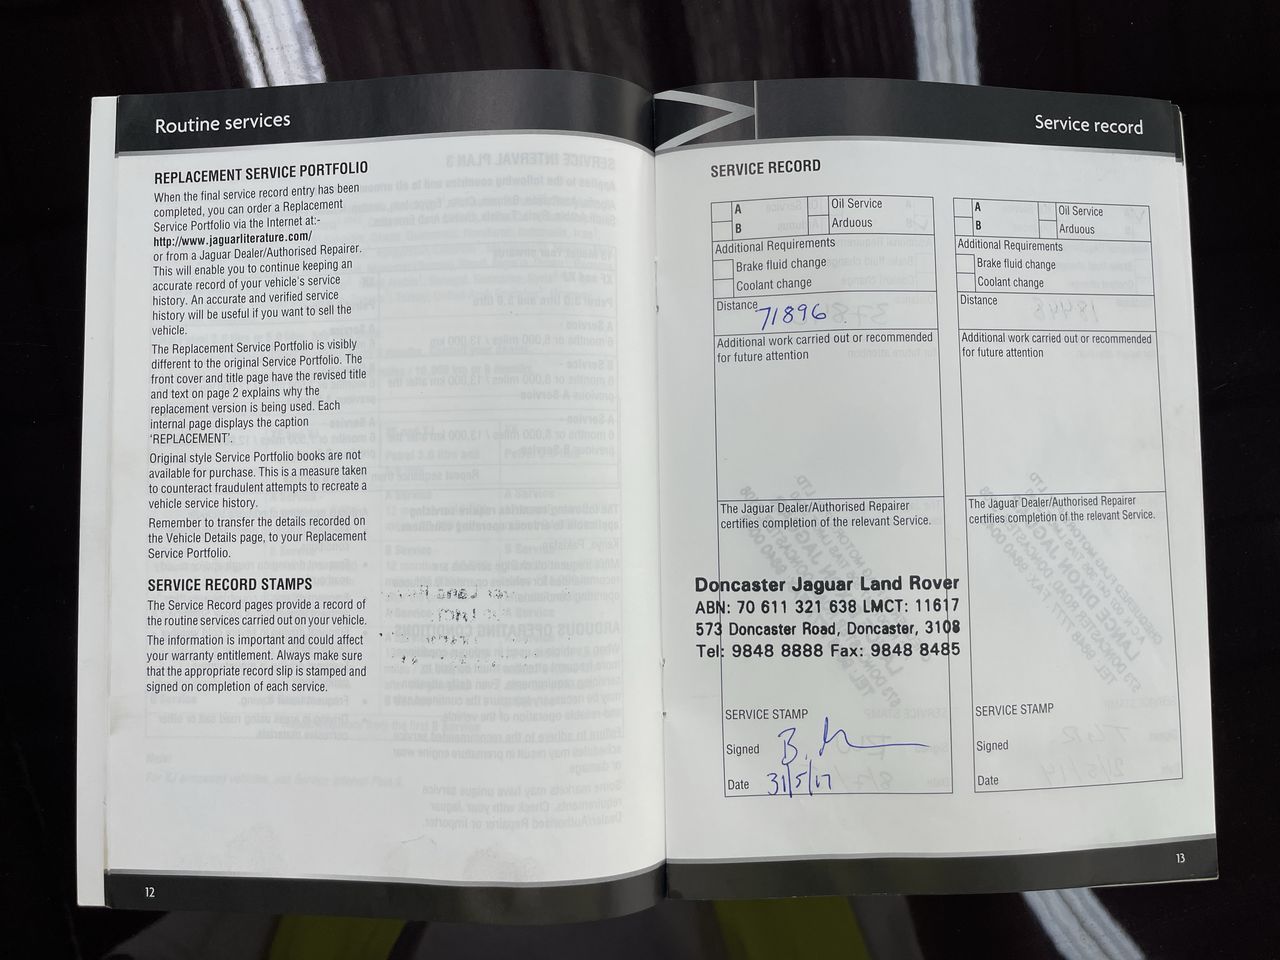 Routine services
REPLACEMENT SERVICE PORTFOLIO
When the final service record entry has been
completed, you can order a Replacement
Service Portfolio via the Internet at:-
http://www.jaguarliterature.com/
or from a Jaguar Dealer/Authorised Repairer.
This will enable you to continue keeping an
accurate record of your vehicle's service
history. An accurate and verified service
history will be useful if you want to sell the
vehicle.
The Replacement Service Portfolio is visibly
different to the original Service Portfolio. The
front cover and title page have the revised title
and text on page 2 explains why the
replacement version is being used. Each
internal page displays the caption
'REPLACEMENT'.
Original style Service Portfolio books are not
available for purchase. This is a measure taken
to counteract fraudulent attempts to recreate a
vehicle service history.
Remember to transfer the details recorded on
the Vehicle Details page, to your Replacement
Service Portfolio.
SERVICE RECORD STAMPS
The Service Record pages provide a record of
the routine services carried out on your vehicle.
The information is important and could affect
your warranty entitlement. Always make sure
that the appropriate record slip is stamped and
signed on completion of each service.
12
Service record
SERVICE RECORD
A Oil Service
B Arduous
Additional Requirements
Brake fluid change
Coolant change
Distance 71896
Additional work carried out or recommended
for future attention
The Jaguar Dealer/Authorised Repairer
certifies completion of the relevant Service.
Doncaster Jaguar Land Rover
ABN: 70 611 321 638 LMCT: 11617
573 Doncaster Road, Doncaster, 3108
Tel: 9848 8888 Fax: 9848 8485
SERVICE STAMP
Signed
Date 31/5/17
A Oil Service
B Arduous
Additional Requirements
Brake fluid change
Coolant change
Distance
Additional work carried out or recommended
for future attention
The Jaguar Dealer/Authorised Repairer
certifies completion of the relevant Service.
SERVICE STAMP
Signed
Date
13